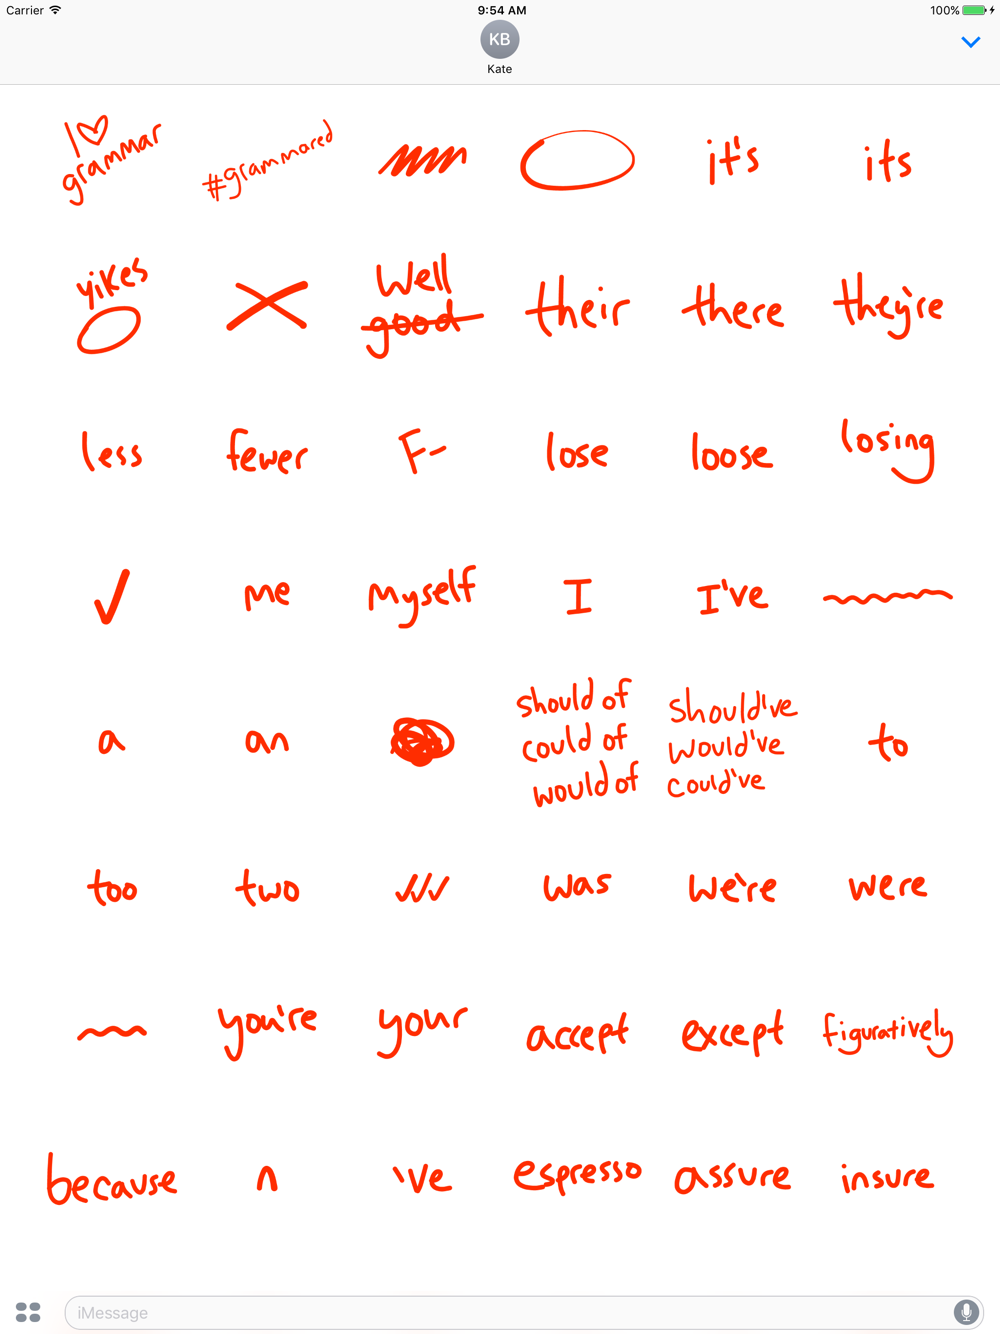 Carrier 9:54 AM 100%
KB
Kate
I ♥
grammar
#grammared
it's
its
yikes
Well
good
their
there
they're
less
fewer
F-
lose
loose
losing
✓
me
myself
I
I've
a
an
should of
could of
would of
should've
would've
could've
to
too
two
✓✓✓
was
we're
were
you're
your
accept
except
figuratively
because
n
've
espresso
assure
insure
iMessage